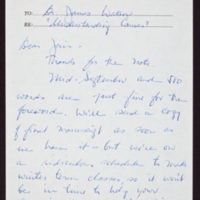 TO: Dr. James Watson
RE: "Understanding Genes"
Dear Jim:
Thanks for the note.
Mid-September and 500
words are just fine for the
foreword. We'll send a copy
of final manuscript as soon as
we have it - but we're on
a schedule to make
winter term classes so it won't
be in time to help your